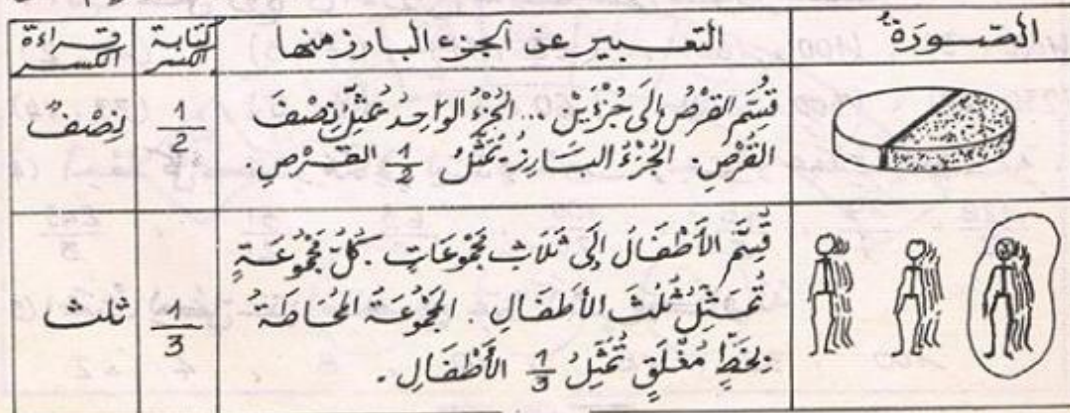 الصّورَةُ
التعبير عن الجزء البارز منها
كتابة الكسر
قراءة الكسر
قُسِّم القُرْصُ إلَى جُزْءَيْنِ... الجُزْءُ الوَاحِدُ يُمَثِّلُ نِصْفَ
القُرْصِ. الجُزْءُ البَارِزُ يُمَثِّلُ 1/2 القُرْصِ.
1/2
نِصْفٌ
قُسِّم الأَطْفَالُ إِلَى ثَلَاثِ مَجْمُوعَاتٍ. كُلُّ مَجْمُوعَةٍ
تُمَثِّلُ ثُلُثَ الأَطْفَالِ. المَجْمُوعَةُ المُحَاطَةُ
بِخَطٍّ مُغْلَقٍ تُمَثِّلُ 1/3 الأَطْفَالِ.
1/3
ثلث